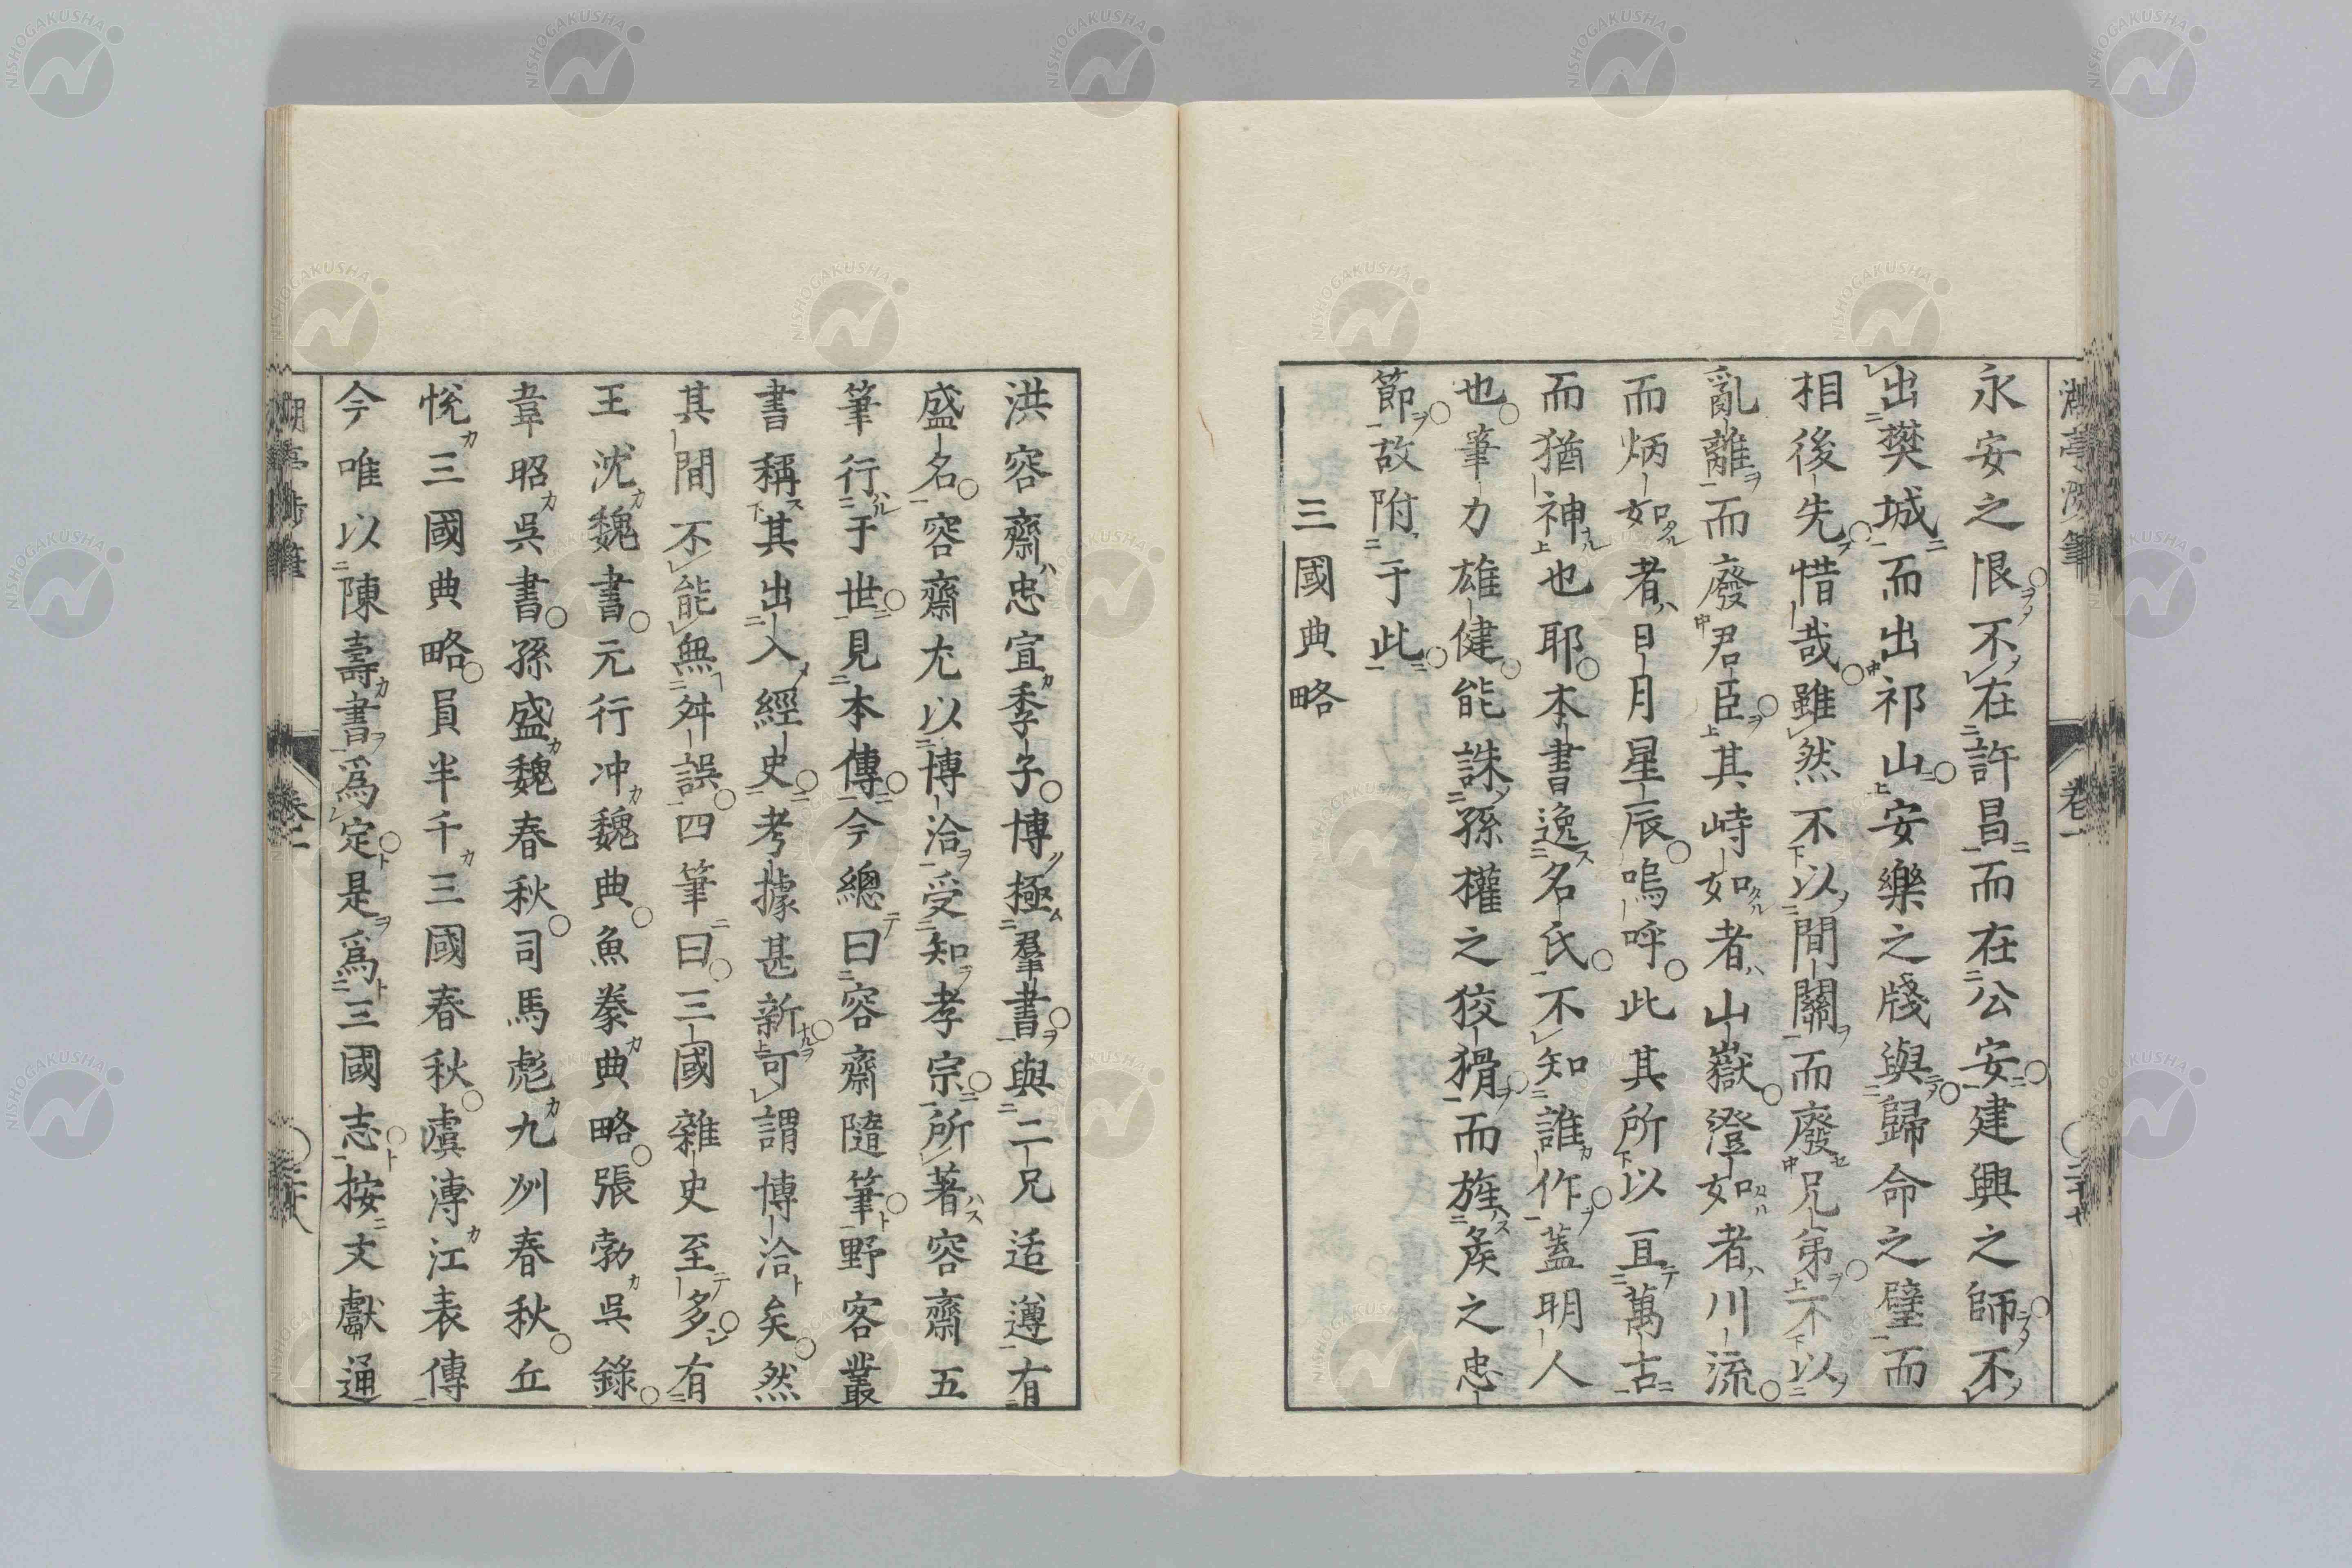 永安之恨不在許昌而在公安建興之師不
出樊城而出祁山安樂之牋與歸命之璧而
相後先惜哉雖然不以間關而廢兄弟不以
亂離而廢君臣其峙如者山嶽澄如者川流
而炳如者日月星辰嗚呼此其所以亘萬古
而猶神也耶本書逸名氏不知誰作蓋明人
也筆力雄健能誅孫權之狡猾而旌矦之忠
節故附于此
三國典略
洪容齋忠宣季子博極羣書與二兄适遵有
盛名容齋尤以博洽受知孝宗所著容齋五
筆行于世見本傳今總曰容齋隨筆野客叢
書稱其出入經史考據甚新可謂博洽矣然
其間不能無舛誤四筆曰三國雜史至多有
王沈魏書元行冲魏典魚豢典略張勃吳錄
韋昭吳書孫盛魏春秋司馬彪九州春秋丘
悅三國典略員半千三國春秋虞溥江表傳
今唯以陳壽書爲定是爲三國志按文獻通
卷一
NISHOGAKUSHA